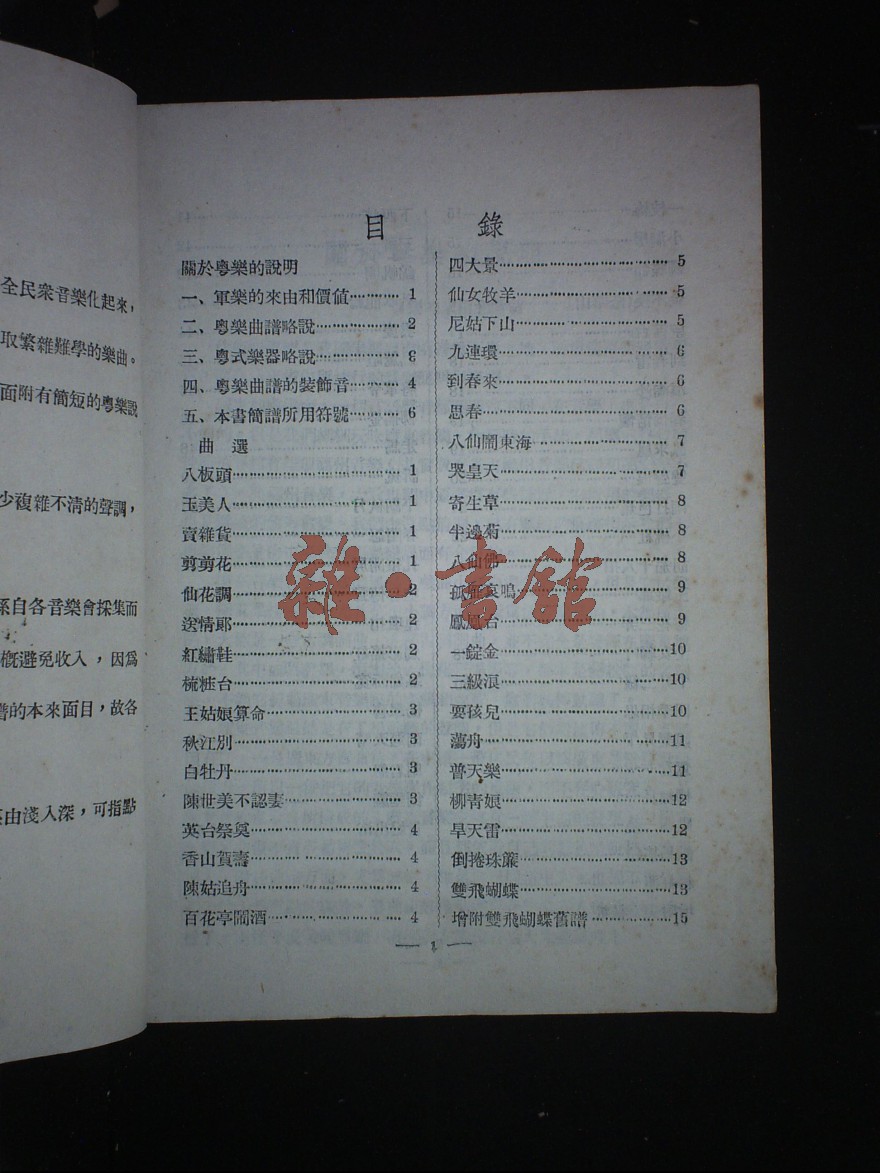 全民衆音樂化起來，
取繁雜難學的樂曲。
面附有簡短的粵樂說
少複雜不清的聲調，
系自各音樂會採集而
概避免收入，因爲
譜的本來面目，故各
由淺入深，可指點
目錄
關於粵樂的說明
一、軍樂的來由和價值············ 1
二、粵樂曲譜略說············ 2
三、粵式樂器略說············
四、粵樂曲譜的裝飾音············ 4
五、本書簡譜所用符號············ 6
曲選
八板頭············ 1
玉美人············ 1
賣雜貨············ 1
剪剪花············ 1
仙花調············ 2
送情郎············ 2
紅繡鞋············ 2
梳粧台············ 2
王姑娘算命············ 3
秋江別············ 3
白牡丹············ 3
陳世美不認妻············ 3
英台祭奠············ 4
香山賀壽············ 4
陳姑追舟············ 4
百花亭鬧酒············ 4
四大景············ 5
仙女牧羊············ 5
尼姑下山············ 5
九連環············ 6
到春來············ 6
思春············ 6
八仙鬧東海············ 7
哭皇天············ 7
寄生草············ 8
半邊菊············ 8
八仙佛············ 8
孤雁哀鳴············ 9
鳳凰台············ 9
一錠金············ 10
三級浪············ 10
耍孩兒············ 10
蕩舟············ 11
普天樂············ 11
柳青娘············ 12
旱天雷············ 12
倒捲珠簾············ 13
雙飛蝴蝶············ 13
增附雙飛蝴蝶舊譜············ 15
— 1 —
雜·書館